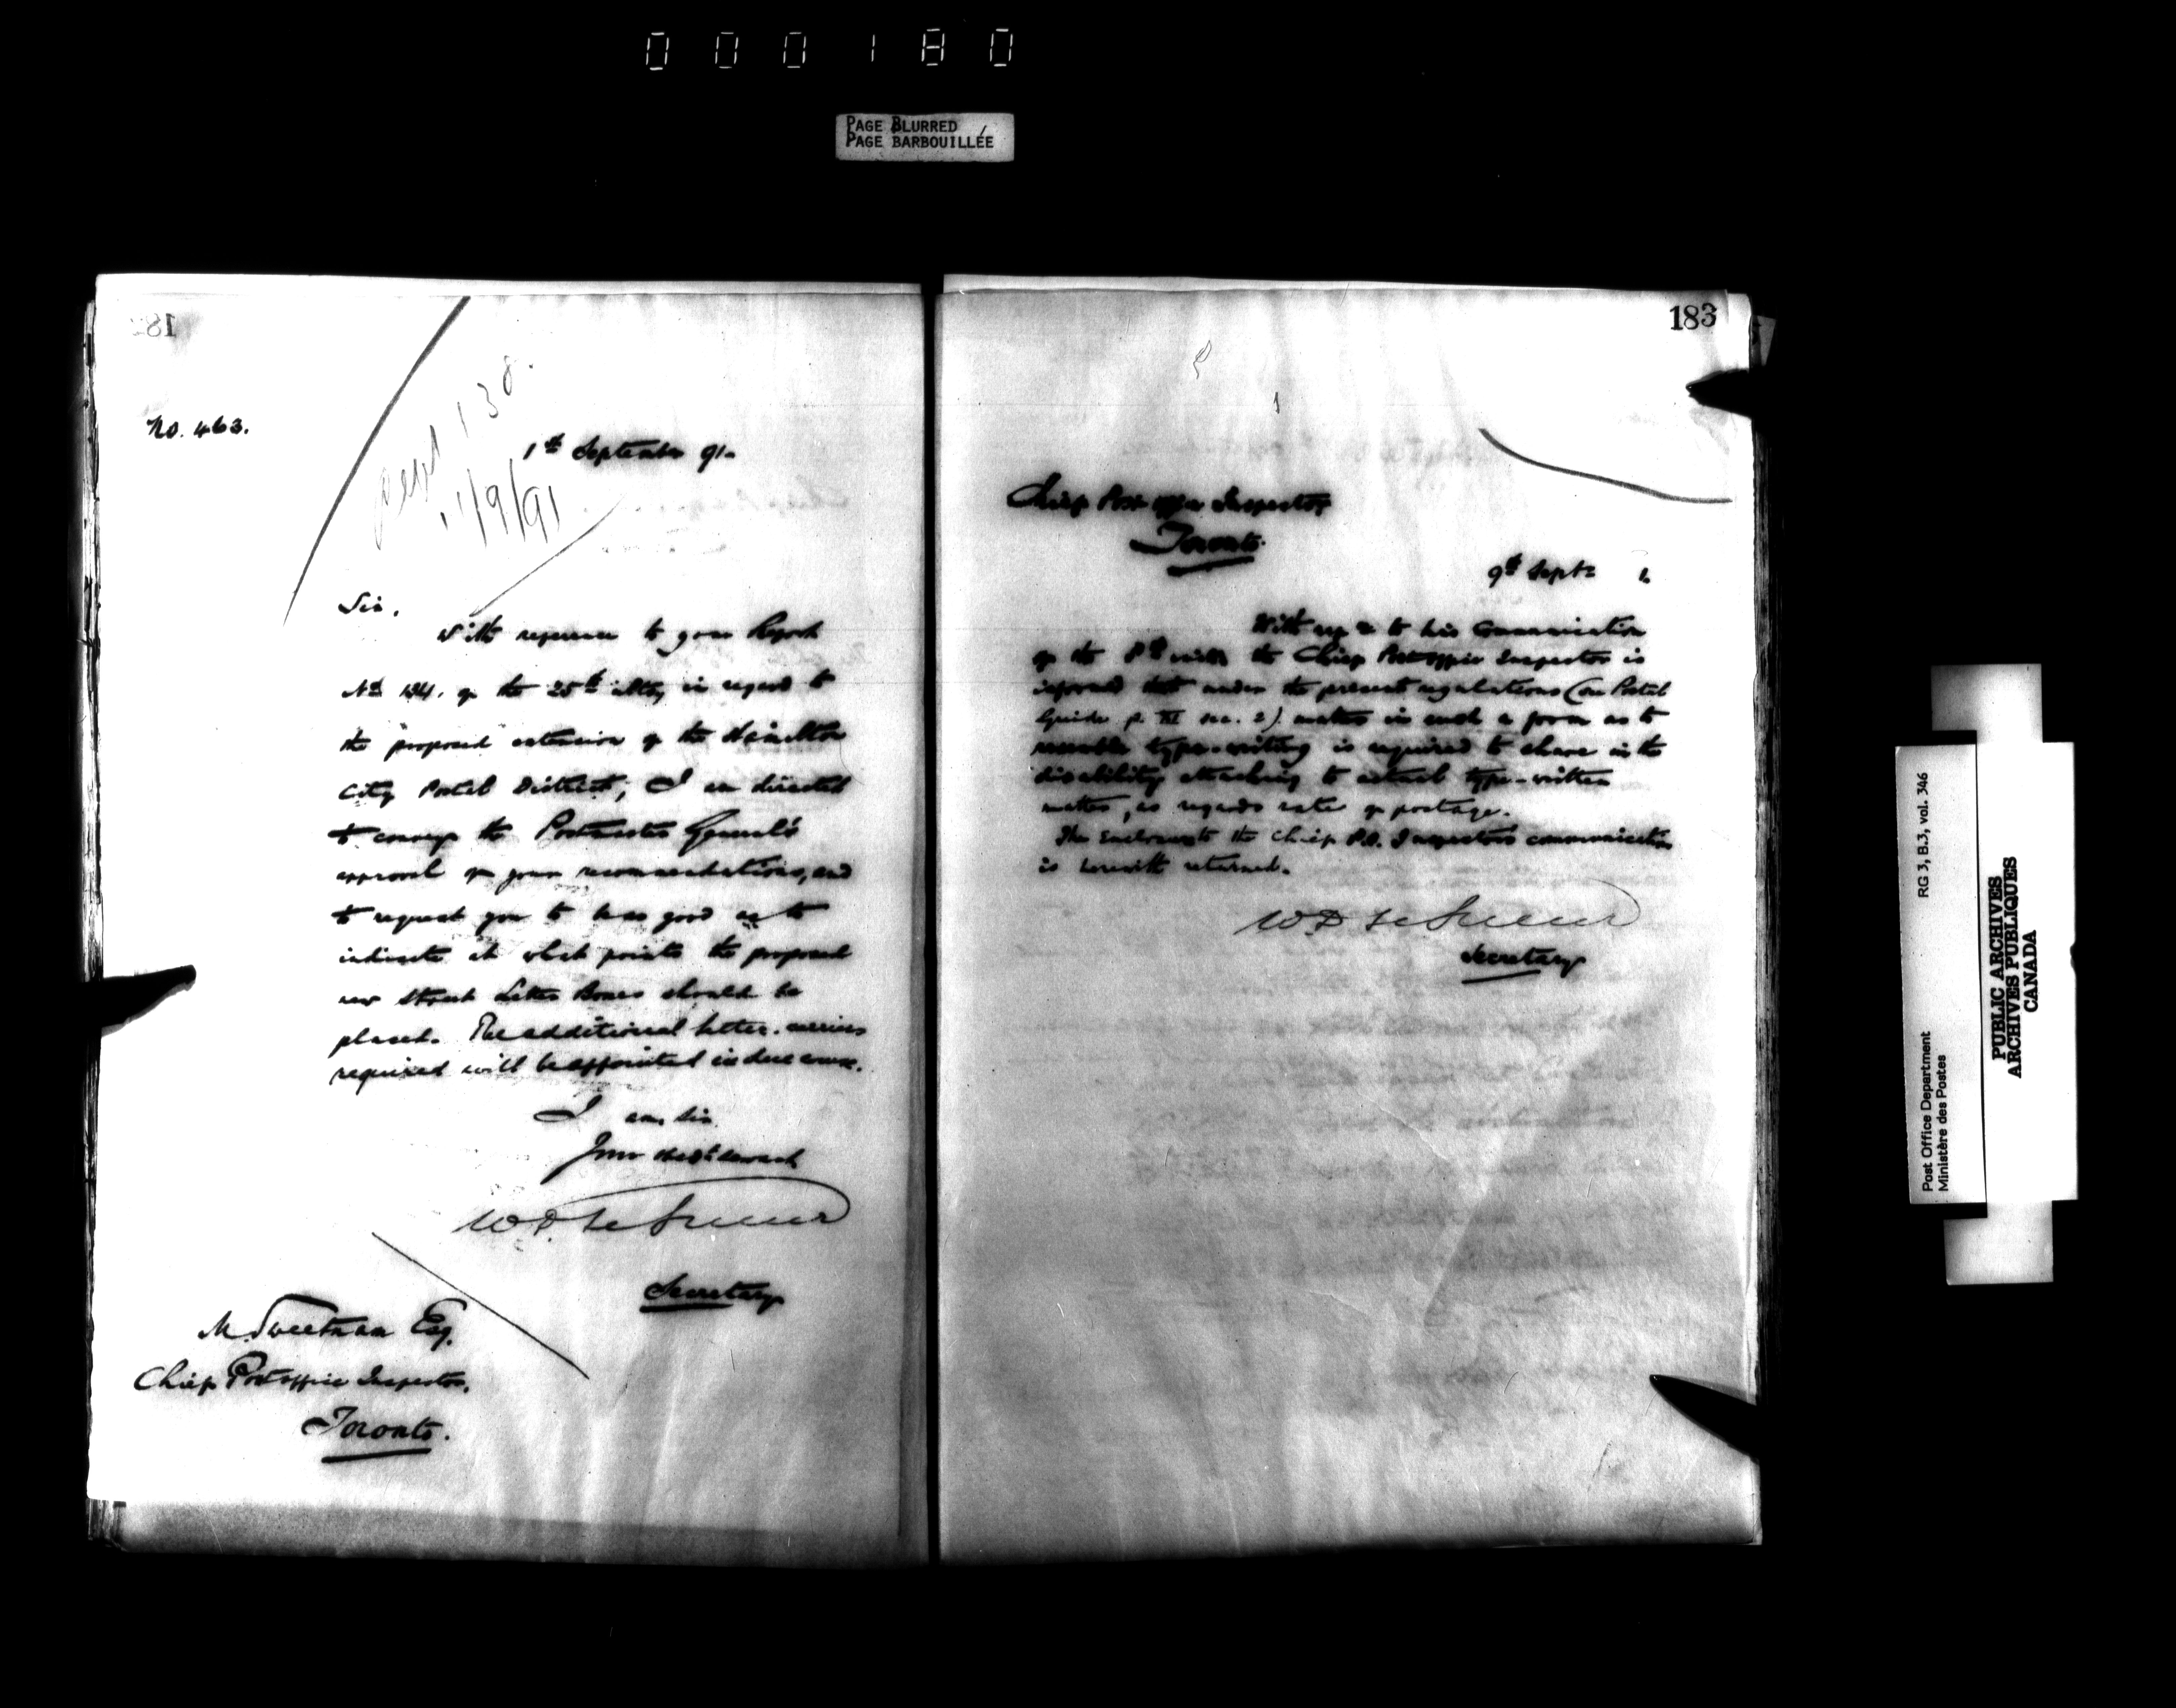 000180
PAGE BLURRED
PAGE BARBOUILLÉE
182
No. 463.
1st September 91.
1/9/91
Sir,
With reference to your Report
No 134. of the 25th ulto, in regard to
the proposed extension of the Hamilton
City Postal District, I am directed
to convey the Postmaster General's
approval of your recommendations, and
to request you to be so good as to
indicate at what points the proposed
new Street Letter Boxes should be
placed. The additional letter-carriers
required will be appointed in due course.
I am, Sir
Your obedt servant
W D LeSueur
Secretary
M. Sweetnam Esq.
Chief Post office Inspector,
Toronto.
183
Chief Post office Inspector,
Toronto.
9th Septr 1.
With ref ce to his Communication
of the the Chief Post office Inspector is
informed that under the present regulations (see Postal
Guide p. III sec. 2) matter in such a form as to
resemble type-writing is required to share in the
disability attaching to actual type-written
matter, as regards rate of postage.
The Enclosure to the Chief P.O. Inspector's communication
is herewith returned.
W D LeSueur
Secretary
Post Office Department
Ministère des Postes
RG 3, B.3, vol. 346
PUBLIC ARCHIVES
ARCHIVES PUBLIQUES
CANADA